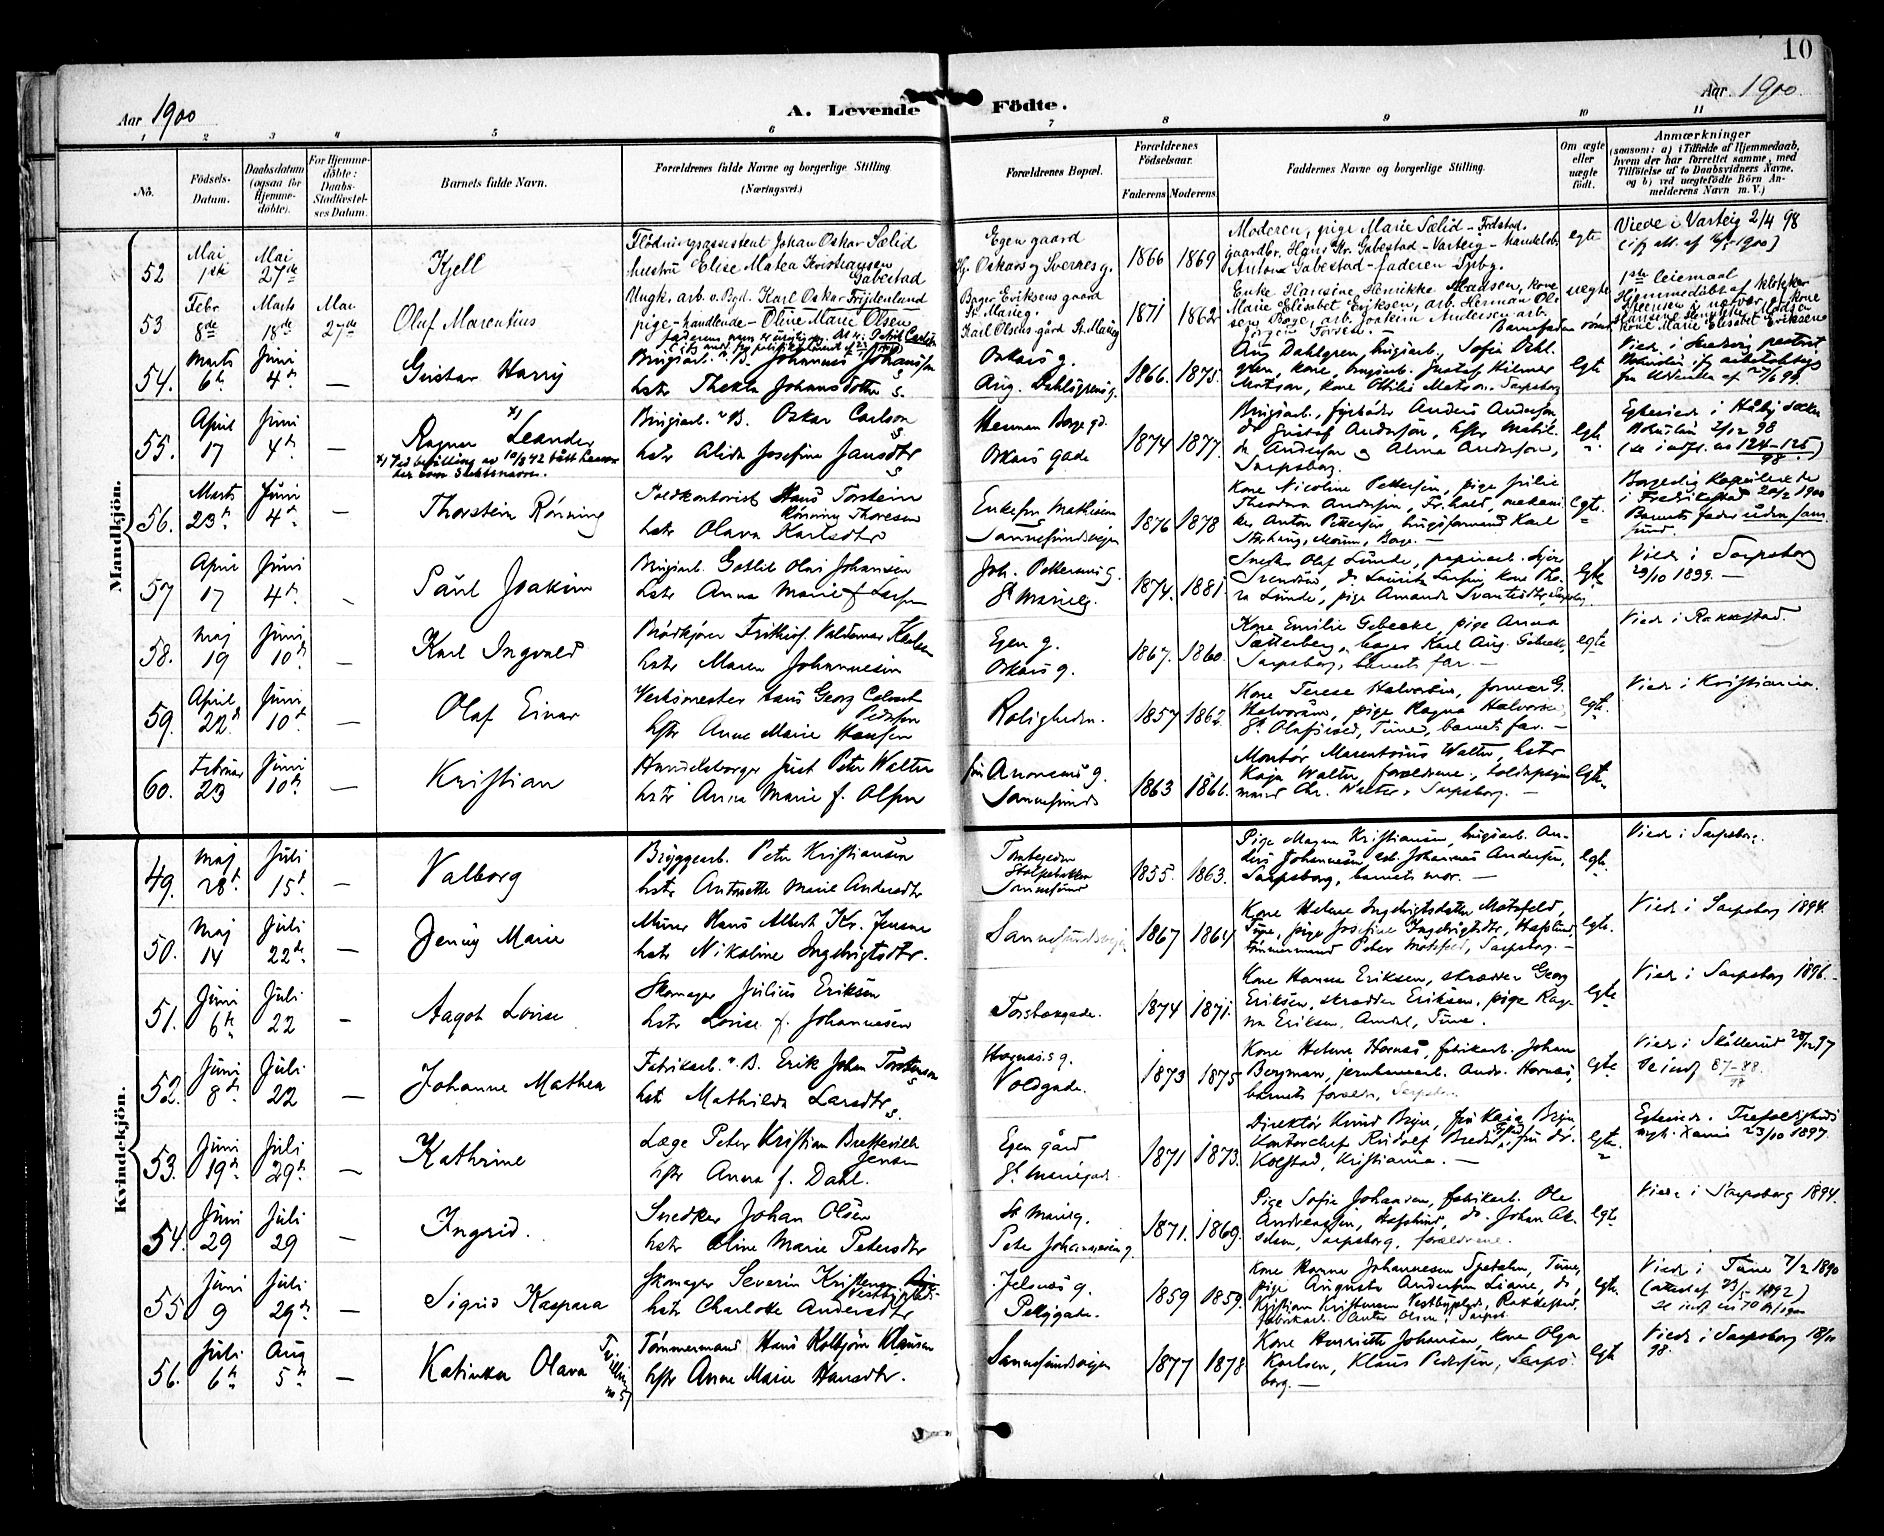 10
Aar 1900
A. Levende Födte.
Aar 1900
1 2 3 4 5 6 7 8 9 10 11
No.
Födsels-Datum.
Daabsdatum (ogsaa for Hjemme-döbte).
For Hjemme-döbte: Daabs-Stadfæstel-ses Datum.
Barnets fulde Navn.
Forældrenes fulde Navne og borgerlige Stilling
(Næringsvei.)
Forældrenes Bopæl.
Forældrenes Födselsaar.
Faderens Moderens
Faddernes Navne og borgerlige Stilling.
Om ægte eller uægte födt.
Anmærkninger
(saasom: a) i Tilfælde af Hjemmedaab,
hvem der har forrettet samme, med
Tilföielse af to Daabsvidners Navne,
og b) ved uægtefödte Börn An-
melderens Navn m. V.)
Mandkjön.
52 Mai 1ste Mai 27de Kjell
Flödningsassistent Johan Oskar Sælid
hustru Elise Matea Kristiansen Gabestad
Egen gaard
Hj. Oskars og Sverresg.
1866 1869
Moderen, pige Marie Sælid - Fredstad
gaardbr. Hans Kr. Gabestad - Varteig - handelsb.
Anton Gabestad - faderen - Spbg.
egte
Viede i Varteig 2/4 98
53 Febr 8de Marts 18de Mai 27de Oluf Marentius
Ungk. arb. v. Bgd. Karl Oskar Frijdenlund
pige - handlende - Oline Marie Olsen
Bager Eriksens gaard
St. Marieg.
Karl Olsens gård St. Marieg
1871 1862
Enke Hansine Henrikke Madsen, kone
Marie Elisabet Eriksen, arb. Herman Ol-
sen Borge, arb. Joakim Andersen arb.
uægte
1ste leiermaal
Hjemmedöbt af klokker
kone Marie Elisabet Eriksen
54. Marts 6te Juni 4de — Gustav Harry
Brugsarb. v. B. Johannes Johansson
hstr Thekla Johansdotter s.
Oskars g.
Aug. Dahlgrens g.
1866. 1875.
Aug Dahlgren, brugsarb., Sofia Dahl-
gren, kone, brugsarb. Gustaf Hilmer
Matson, kone Ottilia Matson. Sarpsborg
egte
55. April 17 Juni 4de — Ragnar x) Leander
x) Ved bevilling av 10/8 42 tatt Leander som slektsnavn.
Brugsarb. v B. Oskar Carlson s
hstr Alida Josefina Jansdtr s
Herman Borge gd.
Oskars gade
1874 1877.
Brugsarb., fyrböder Anders Anderson
do Gustaf Anderson, hstr Matil-
da Anderson og Alma Anderson,
Sarpsborg.
egte
Egteviede i Håby socken
Bohuslän 2/12 98
(se indf. no 124-125/98)
56. Marts 23de Juni 4de — Thorstein Rønning
Toldkontorist Hans Torstein
Rønning Thoresen
hstr Olava Karlsdtr
Enkefru Mathisen
Sannesundsveien
1876 1878
Kone Nicoline Pettersen, pige Julie
Theodora Andersen, Fr.hald, mekani-
ker Anton Pettersen, brugsformand Karl
egte.
Borgerlig kopulerede
i Fredrikstad 20/2 1900
Barnets fader uden sam-
fund.
57 April 17 Juni 4de Paul Joakim
Brugsarb. Gotlib Olai Johansen
hstr Anna Marie f. Larsen
Joh. Pettersens g.
St Marieg.
1874. 1881
Snekker Olaf Lunde, papirarb. Sigv.
Svendsen, do Laurits Larsen, kone Tho-
ra Lunde, pige Amanda Svantesdtr, Sarpsbg.
egte
Viede i Sarpsborg
29/10 1899. —
58. Maj 19 Juni 10de — Karl Ingvald
Brödkjörer Frithjof Valdemar Karlsen
hstr Maren Johannesen
Egen g.
Oskars g.
1867. 1860.
Kone Emilie Gebecke, pige Anna
Sætterberg, bager Karl Aug. Gebecke,
Sarpsborg, barnets far. —
egte
Viede i Rakkestad.
59. April 22de Juni 10de — Olaf Einar
Verksmester Hans Georg
Pedersen
hstr Anne Marie Hansen
Roligheden.
1857 1862
Kone Terese Halvorsen, former G.
Halvorsen, pige Ragna Halvorsen
St. Olafsveld, Tune, barnets far. —
egte.
Viede i Kristiania.
60. Februar 23 Juni 10de — Kristian
Handelsborger Just Peter Walter
hstr Anna Marie f. Olsen
fru g.
Sannesund
1863 1866.
Montör Marentsius Walter, hstr
Kaja Walter, forældrene,
Chr. Walter, Sarpsborg. —
egte.
Kvindekjön.
49. Maj 28de Juli 15de — Valborg
Bryggearb. Peter Kristiansen
hstr Antonette Marie Andersdtr
Stolpebakken
Sannesund
1855. 1863.
Pige Magna Kristiansen, brugsarb. An-
ders Johannesen, arb. Johannes Andersen,
Sarpsborg, barnets mor. —
egte.
Viede i Sarpsborg.
50. Maj 14 Juli 22de — Jenny Marie
Murer Hans Albert Kr. Jensen
hstr Nikoline Ingebrigtsdtr.
Sannesundsveien
1867 1864
Kone Helene Ingebrigtsdatter Motsfeld,
Tune, pige Josefine Ingebrigtsdtr, Hafslund,
tömmermand Peter Motsfeld, Sarpsborg. —
egte.
Viede i Sarpsborg 1894.
51. Juni 6te Juli 22 — Aagot Lovise
Skomager Julius Eriksen
hstr Lovise f. Johannesen
Torsbekgade.
1874 1871.
Kone Hanna Eriksen, skrædder Georg
Eriksen, skrædder Eriksen, pige Rag-
na Eriksen, Tune.
egte
Viede i Sarpsborg 1896. —
52. Juni 8de Juli 22 — Johanne Mathea
Fabrikarb. v B. Erik Johan Torstenson s
hstr Mathilda Larsdtr s.
Hornæs g.
Voldgade.
1873 1875
Kone Helene Hornæs, fabrikarb. Johan
Bergman, jernbanearb. Andr. Hornæs,
barnets foræld., Sarpsborg
egte.
Se indf 87-88.
53. Juni 19de Juli 29de — Kathrine
Læge Peter Kristian Bretteville
Jensen
hstr Anna f. Dahl.
Egen gård
St. Mariegade.
1871 1873.
Direktör Knud Bryn, fru Kaia Bryn
Kontorchef Rudolf Bredo, fru Dr.
Kolstad, Kristiania. —
egte.
Egteviede i Trefoldigheds
mgh. Xania 23/10 1897.
54. Juni 29 Juli 29 — Ingrid.
Snedker Johan Olsen
hstr Oline Marie Petersdtr
St Marieg.
Peter Johannesens g.
1871. 1869.
Pige Sofie Johansen, fabrikarb. Ole
Andreassen, Hafslund, do. Johan Ak-
selsen, Sarpsborg, forældrene.
egte.
Viede i Sarpsborg 1894.
55 Juni 9 Juli 29de — Sigrid Kaspara
Skomager Severin Kristensen
Vestbygded.
hstr Charlotte Andersdtr
Jelsnæs g.
Pellygade.
1859 1859.
Kone Hanna Johannesen Spetalen, Tune,
pige Augusta Andersen Liane, do,
Kristian Kristensen Vestbygd, Rakkestad,
fabrikarb. Anton Olsen, Sarpsb.
egte.
Viede i Tune 7/2 1890
56. Juli 6te Aug 5te — Katinka Olava
Tvilling m 57
Tømmermand Hans Kolbjörn Klausen
hstr Anne Marie Hansdtr.
Sannesundsveien
1877 1878
Kone Henriette Johansen, kone Olga
Karlsen, Klaus Pedersen, Sarps-
borg. —
egte
Viede i Sarpsborg 18/11
98.